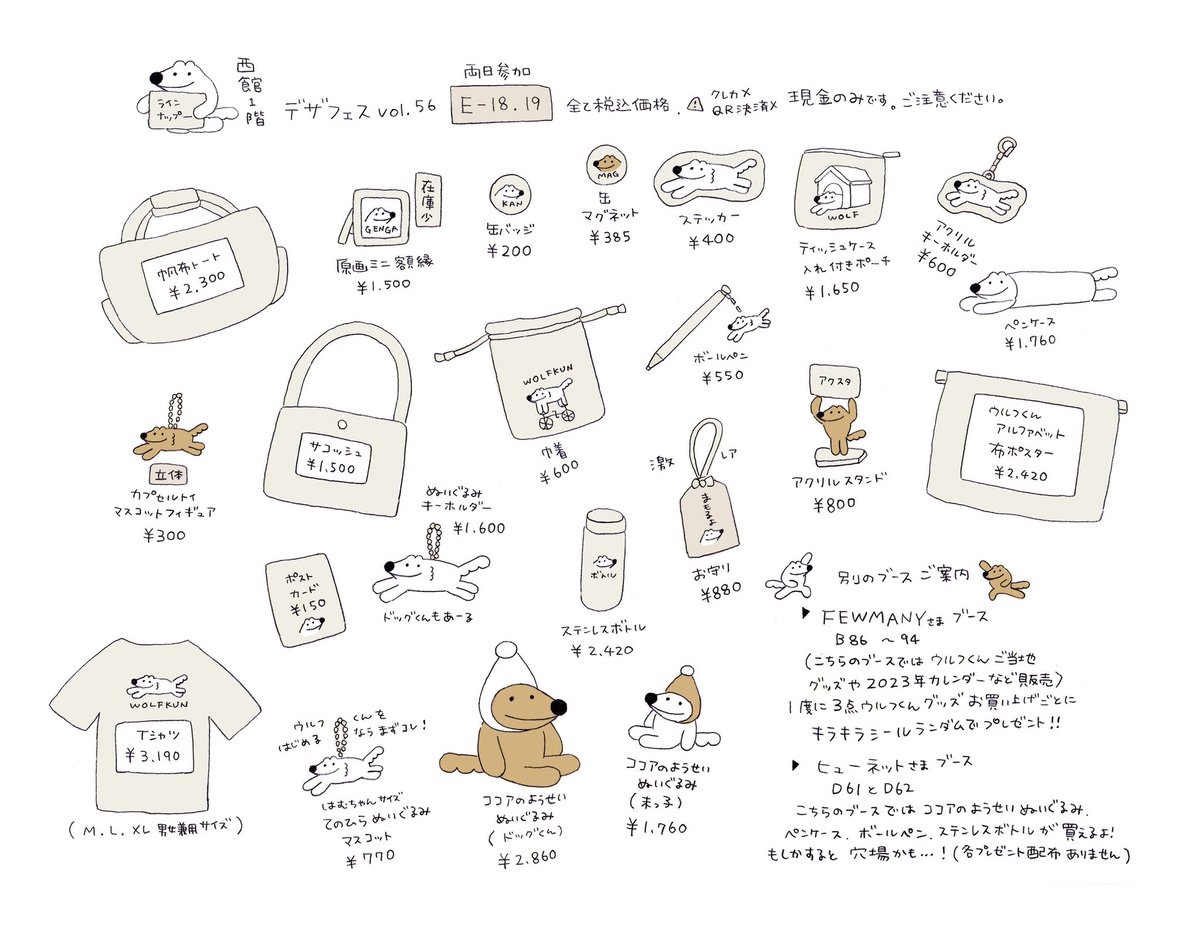 ライン
ナップー
西館1階
デザフェス vol.56
両日参加
E-18.19
全て税込価格.
クレカ×
QR決済×
現金のみです。ご注意ください。
帆布トート
¥2,300
GENGA
在庫少
原画ミニ額縁
¥1.500
KAN
缶バッジ
¥200
MAG
缶
マグネット
¥385
ステッカー
¥400
WOLF
ティッシュケース
入れ付きポーチ
¥1.650
アクリル
キーホルダー
¥600
ペンケース
¥1.760
立体
カプセルトイ
マスコットフィギュア
¥300
サコッシュ
¥1.500
WOLFKUN
巾着
¥600
ボールペン
¥550
激レア
まもるよ
お守り
¥880
アクスタ
アクリルスタンド
¥800
ウルフくん
アルファベット
布ポスター
¥2.420
ポスト
カード
¥150
ぬいぐるみ
キーホルダー
¥1.600
ドッグくんもあーる
ボトル
ステンレスボトル
¥2.420
WOLFKUN
Tシャツ
¥3.190
(M.L.XL 男女兼用サイズ)
ウルフくんを
はじめるならまずコレ!
はむちゃんサイズ
てのひらぬいぐるみ
マスコット
¥770
ココアのようせい
ぬいぐるみ
(ドッグくん)
¥2.860
ココアのようせい
ぬいぐるみ
(末っ子)
¥1.760
別のブースご案内
▶ FEWMANYさまブース
B86 〜94
(こちらのブースではウルフくんご当地
グッズや2023年カレンダーなど販売)
1度に3点ウルフくんグッズお買い上げごとに
キラキラシールランダムでプレゼント!!
▶ ヒューネットさまブース
D61とD62
こちらのブースではココアのようせいぬいぐるみ.
ペンケース.ボールペン.ステンレスボトルが買えるよ!
もしかすると穴場かも…!(各プレゼント配布ありません)